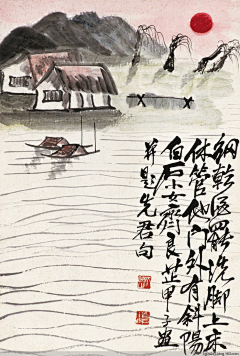 網乾酒罷洗脚上床
休管他門外有斜陽
白石小女齊良芷甲子畫
并題先君句